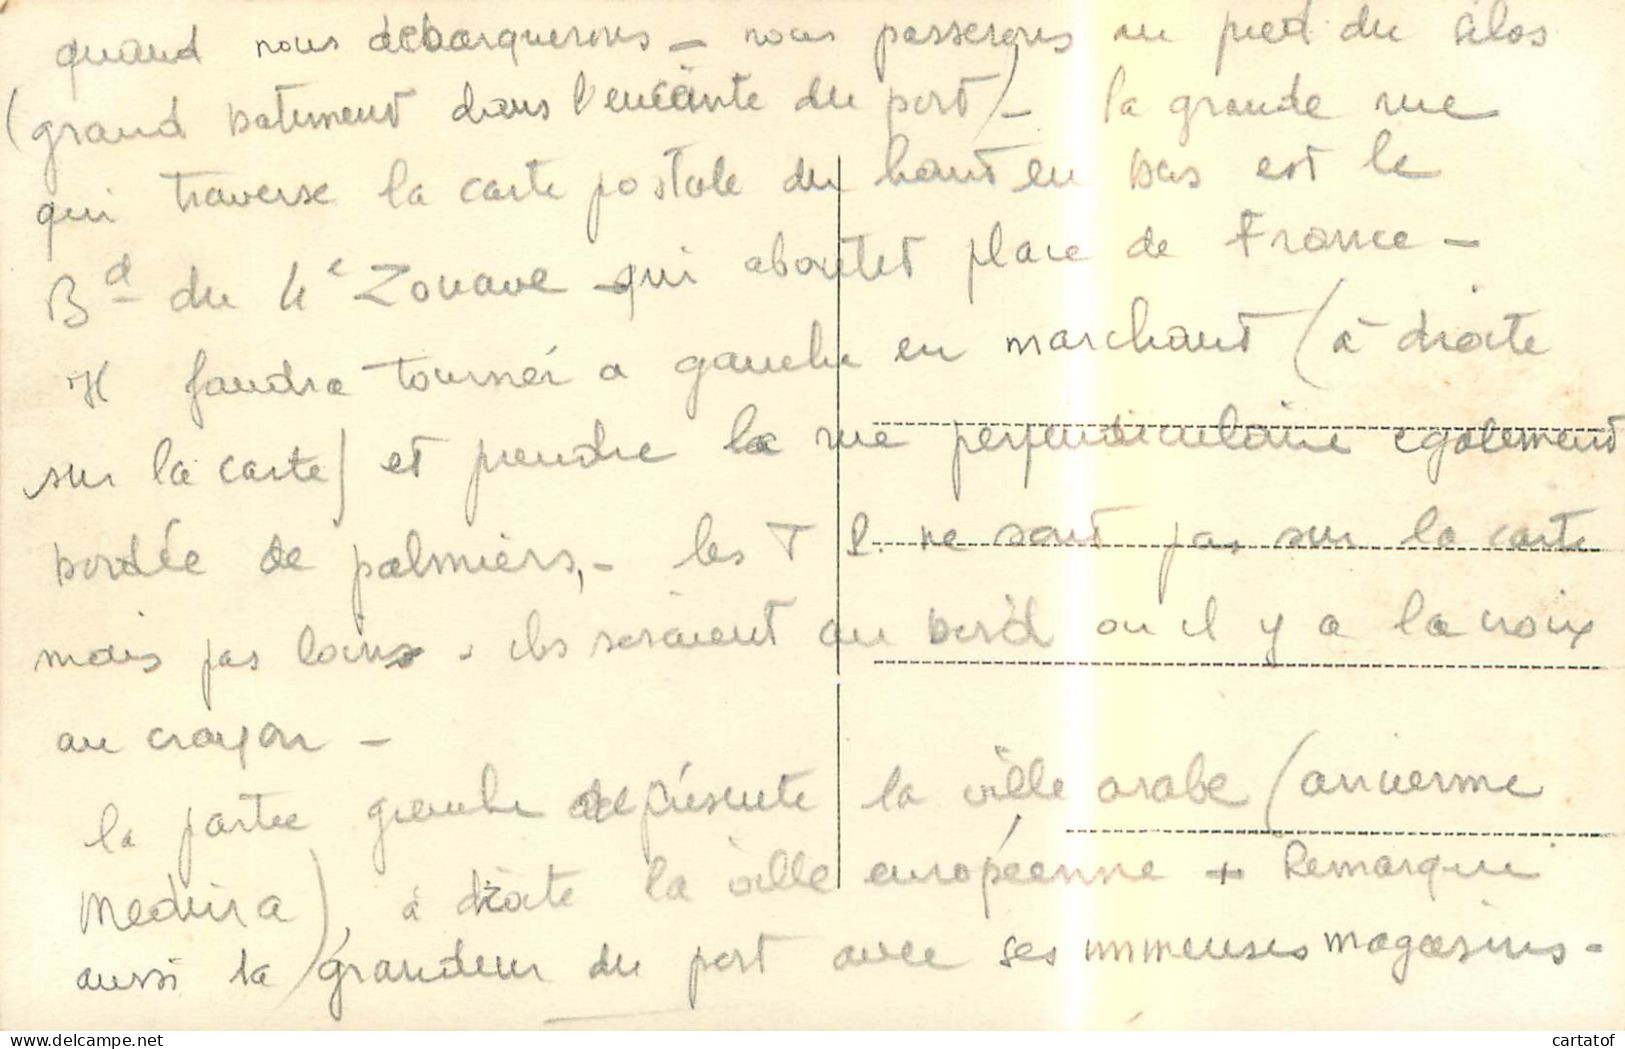 quand nous débarquerons — nous passerons au pied du silos
(grand batiment dans l'enceinte du port) — la grande rue
qui traverse la carte postale du haut en bas est le
Bd du 4e Zouave qui aboutit place de France —
Il faudra tourner a gauche en marchant (à droite
sur la carte) et prendre la rue perpendiculaire egalement
bordée de palmiers, — les T P. ne sont pas sur la carte
mais pas loin . ils seraient au bord ou il y a la croix
au crayon —
la partie gauche représente la ville arabe (ancienne
Medina), à droite la ville européenne + Remarquer
aussi la grandeur du port avec ses immenses magasins -
cartatof